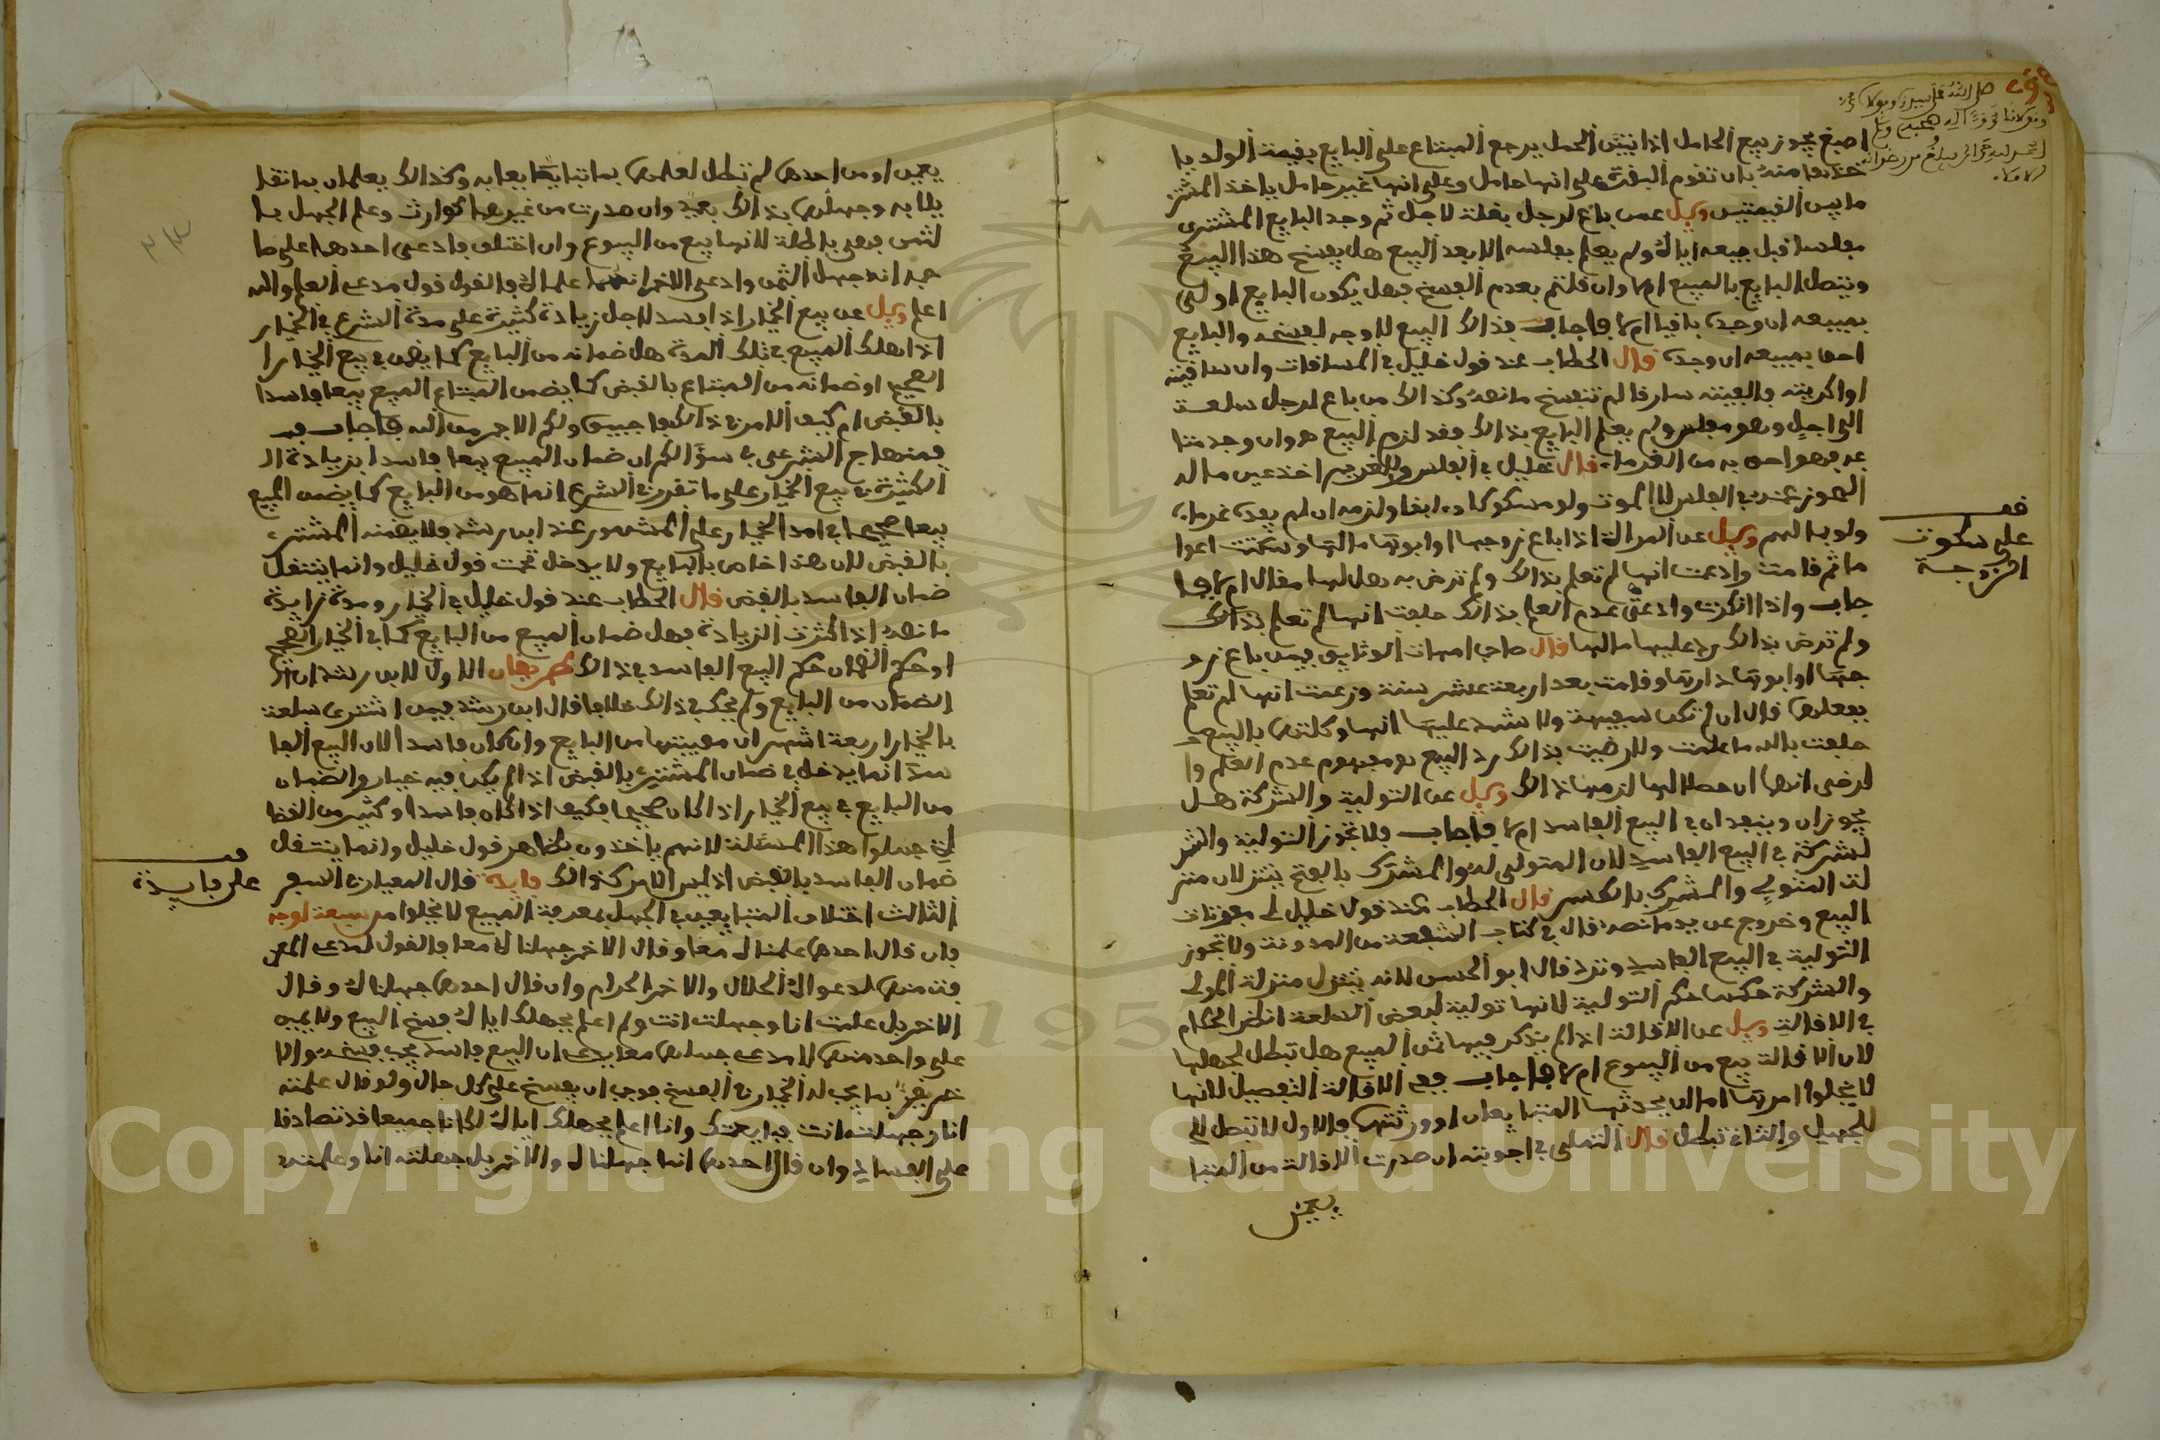 صلى الله على سيدنا ومولانا محمد
اصبغ يجوز بيع الحامل اذا تبين الحمل يرجع المبتاع على البايع بقيمة الولد يا
خذها منه بان تقوم البقرة على انها حامل وعلى انها غير حامل ياخذ المشتر
ما بين القيمتين وسيل عمن باع لرجل بغلة لاجل ثم وجد البايع المشترى
مفلسا قبل بيعه اياه ولم يعلم بفلسه الا بعد البيع هل يفسخ هذا البيع
ويتصل البايع بالمبيع ام لا وان قلتم بعدم الفسخ فهل يكون البايع اولى
بمبيعه ان وجده باقيا ام لا فاجاب بذالك البيع لا وجه لفسخه والبايع
احق بمبيعه ان وجده قال الحطاب عند قول خليل في المساقات وان ساقيته
او اكريته فالفيته سارقا لم تنفسخ ما نصه وكذالك من باع لرجل سلعة
الى اجل وهو مفلس ولم يعلم البايع بذالك فقد لزم البيع هو وان وجد متا
عه فهو احق به من الغرماء قال خليل في الفلس وللغريم اخذ عين ماله
المحوز عنه في الفلس لا الموت ولو مسكوكا وءابقا ولزمه ان لم يجده غرماء
ولو بمالهم وسيل عن المراة اذا باع زوجها او ابوها مالها وسكتت اعوا
ما ثم قامت وادعت انها لم تعلم بذالك ولم ترض به هل لها مقال ام لا فا
جاب واذا انكرت وادعت عدم العلم بذالك حلفت انها لم تعلم بذالك
ولم ترض بذالك رد عليها مالها قال صاحب امهات الوثايق فيمن باع زو
جها او ابوها دارها وقامت بعد اربعة عشر سنة وزعمت انها لم تعلم
بفعلهما قال ان لم تكن سفيهة ولا شهد عليها انها وكلتهما بالبيع
حلفت بالله ما علمت ولا رضيت بذالك رد البيع هو مفهوم عدم العلم وا
لرضى انهما ان حصلا لها لزمها ذالك وسيل عن التولية والشركة هل
يجوزان وينعقدان في البيع الفاسد ام لا فاجاب فلا تجوز التولية والشر
لشركة في البيع الفاسد لان المتولى له والمشترك بالفتح ينزلان منز
لة المتولي والمشرك بالكسر قال الحطاب عند قول خليل لا بفوات
البيع وخروج عن يد ما نصه قال في كتاب الشفعة من المدونة ولا تجوز
التولية في البيع الفاسد وترد قال ابو الحسن لانه ينزل منزلة المولى
والشركة حكمها حكم التولية لانها تولية لبعض السلعة انظر الحكام
في الاقالة وسيل عن الاقالة اذا لم يذكر فيها ثمن المبيع هل تبطل لجهلها
لان الاقالة بيع من البيوع ام لا فاجاب ففي الاقالة التفصيل لانها
لا يخلوا امرها اما ان يحدثها المتبايعان او ورثتهما فالاول لا تبطل للج
للجهل والثاني تبطل قال التملي في اجوبته ان صدرت الاقالة من المتبا
يعين
فف
على سكوت
الزوجة
يعين او من احدهما لم تبطل لعلمهما بما تبايعا به وكذالك يعلمان بما تقا
يلا به وجهلهما بذالك بعيد وان صدرت من غيرهما كوارث وعلم الجهل با
لثمن فهي باطلة لانها بيع من البيوع وان اختلف وادعى احدهما على صا
حبه انه جهل الثمن وادعى الاخر انهما علماه فالقول قول مدعي العلم والله
اعلم وسيل عن بيع الخيار اذا فسد لاجل زيادة كثيرة على مدة الشرع في الخيار
اذا هلك المبيع في تلك المدة هل ضمانه من البايع كما يضمن في بيع الخيار ا
لصحيح او ضمانه من المبتاع بالقبض كما يضمن المبتاع المبيع بيعا فاسدا
بالقبض ام كيف الامر في ذالك فاجيبنى ولكم الاجر من الله فاجاب فى
فمنهاج الشرعي في سؤالكم ان ضمان المبيع بيعا فاسدا بزيادة ال
الكثيرة في بيع الخيار على ما تقرر في الشرع انما هو من البايع كما يضمن المبيع
بيعا صحيحا في امد الخيار على المشهور عند ابن رشد ولا يضمنه المشترى
بالقبض لان هذا خاص بالبايع ولا يدخل تحت قول خليل وانما ينتقل
ضمان الفاسد بالقبض قال الحطاب عند قول خليل في الخيار ومدة زايدة
ما نصه اذا كثرت الزيادة فهل ضمان المبيع من البايع كما في الخيار الصحيح
او حكم الضمان حكم البيع الفاسد في ذالك طريقان الاولى لابن رشد ان ا
الضمان من البايع ولم يحك في ذالك خلافا قال ابن رشد فيمن اشترى سلعة
بالخيار اربعة اشهر ان مصيبتها من البايع وان كان فاسدا لان البيع الفا
سد انما يدخل في ضمان المشترى بالقبض اذا لم يكن فيه خيار والضمان
من البايع في بيع الخيار اذا كان صحيحا فكيف اذا كان فاسدا وكثير من القضا
ة جهلوا هذا المسئلة لانهم ياخذون بظاهر قول خليل وانما ينتقل
ضمان الفاسد بالقبض اذ ليس الامر كذالك فايدة قال المعيار في السفر
الثالث اختلاف المتبايعين في الجهل بمعرفة المبيع لا يخلوا من سبعة اوجه
فان قال احدهما علمناه معا وقال الاخر جهلناه معا فالقول لمدعي المعر
فة منهما لدعواه الحلال والاخر الحرام وان قال احدهما جهلناه وقال
الاخر بل علمت انا وجهلت انت ولم اعلم بجهلك اياه فسخ البيع ولا يمين
على واحد منهما لان مدعي جهلهما معا يدعى ان البيع فاسد يجب فسخه والا
خر يقر بما يجب له الخيار في الفسخ فوجب ان يفسخ على كل حال ولو قال علمته
انا وجهلت انت فبايعتك وانا اعلم بجهلك اياه لكانا جميعا قد تصادقا
على الفساد وان قال احدهما انما جهلناه والاخر بل جهلته انا وعلمته
فف
على فايدة